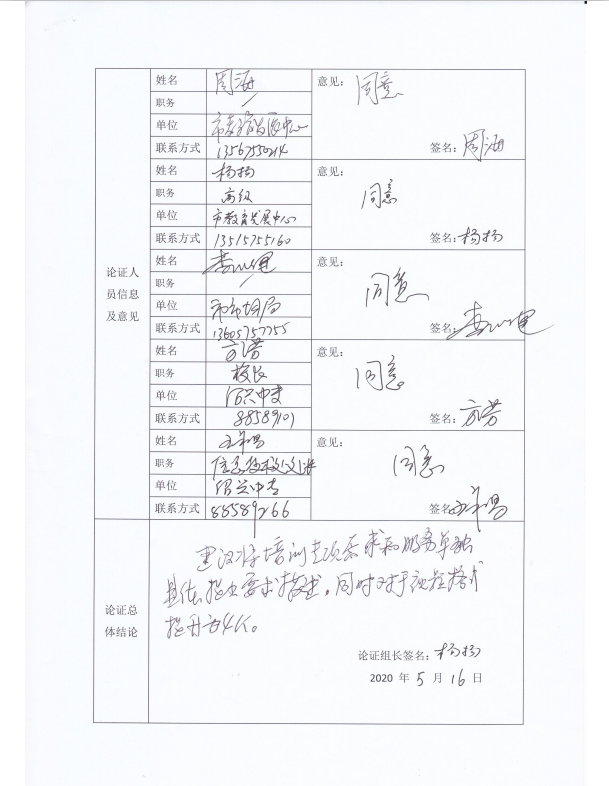 姓名 周海 意见：
职务 / 同意
单位 市教育发展中心
联系方式 13567550214 签名：周海
姓名 杨扬 意见：
职务 高级 同意
单位 市教育发展中心
联系方式 13515755160 签名：杨扬
姓名 意见：
职务 / 同意
单位
联系方式 13605757755 签名：
姓名 方芳 意见：
职务 校长 同意
单位 中专
联系方式 88589101 签名：方芳
姓名 意见：
职务 信息 同意
单位 绍兴中专
联系方式 88589266 签名
论证人
员信息
及意见
建议将培训专项要求和服务单独
具体指出要求描述，同时对于视频格式
提升为4K。
论证总
体结论
论证组长签名：杨扬
2020 年 5 月 16 日